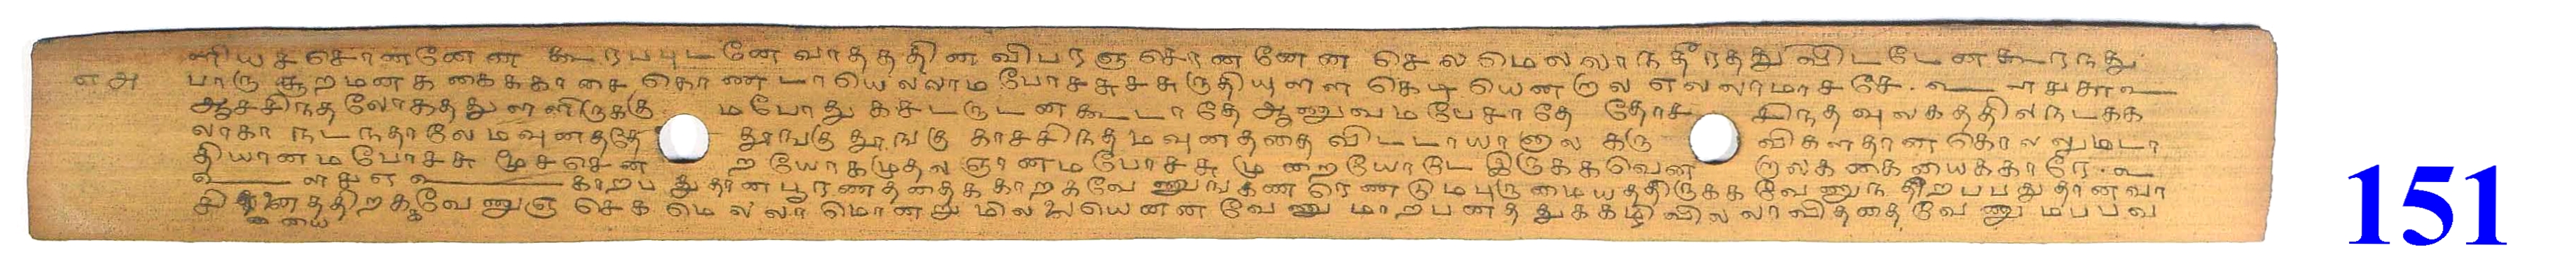 ளியச சொனனேன கூரபபுடனே வாதததின விபரஞ சொனனேன செலமெலலாந தீரதது விடடேன கூரநது
எஅ பாரு சூறமனக கைசுகாசை கொணடாயெலலாம போசசுசசுருதியுளள கெடி யெனறுல எலலாமாசசே
ஆசசிநத லோகதது ளளிருககு மபோது கசடருடனகூடாதே ஆணுவமபேசாதே தோச சிநத வுலகததிலநடகக
லாகா நடநதாலே மவுனததே தூஙகு தூஙகு காசசிநத மவுனததை விடடாயானுல கரு விகளதான கொலலுமடா
தியானமபோசசு மூசசென ற யோகமுதல ஞானமபோசசு முனறையோடே இருககவென றுலககையைககாரே
காறப துதான பூரணததைக காறகவே ணுஙகண ரெணடுமபுருமையததிருகக வேணுந தீறபபதுதானவா
சினததிறககவேணுஞ செகமெலலாமொனறுமிலலையெனன வேணு மாறபனத துககழிவிலலாவிததை வேணுமபபவ